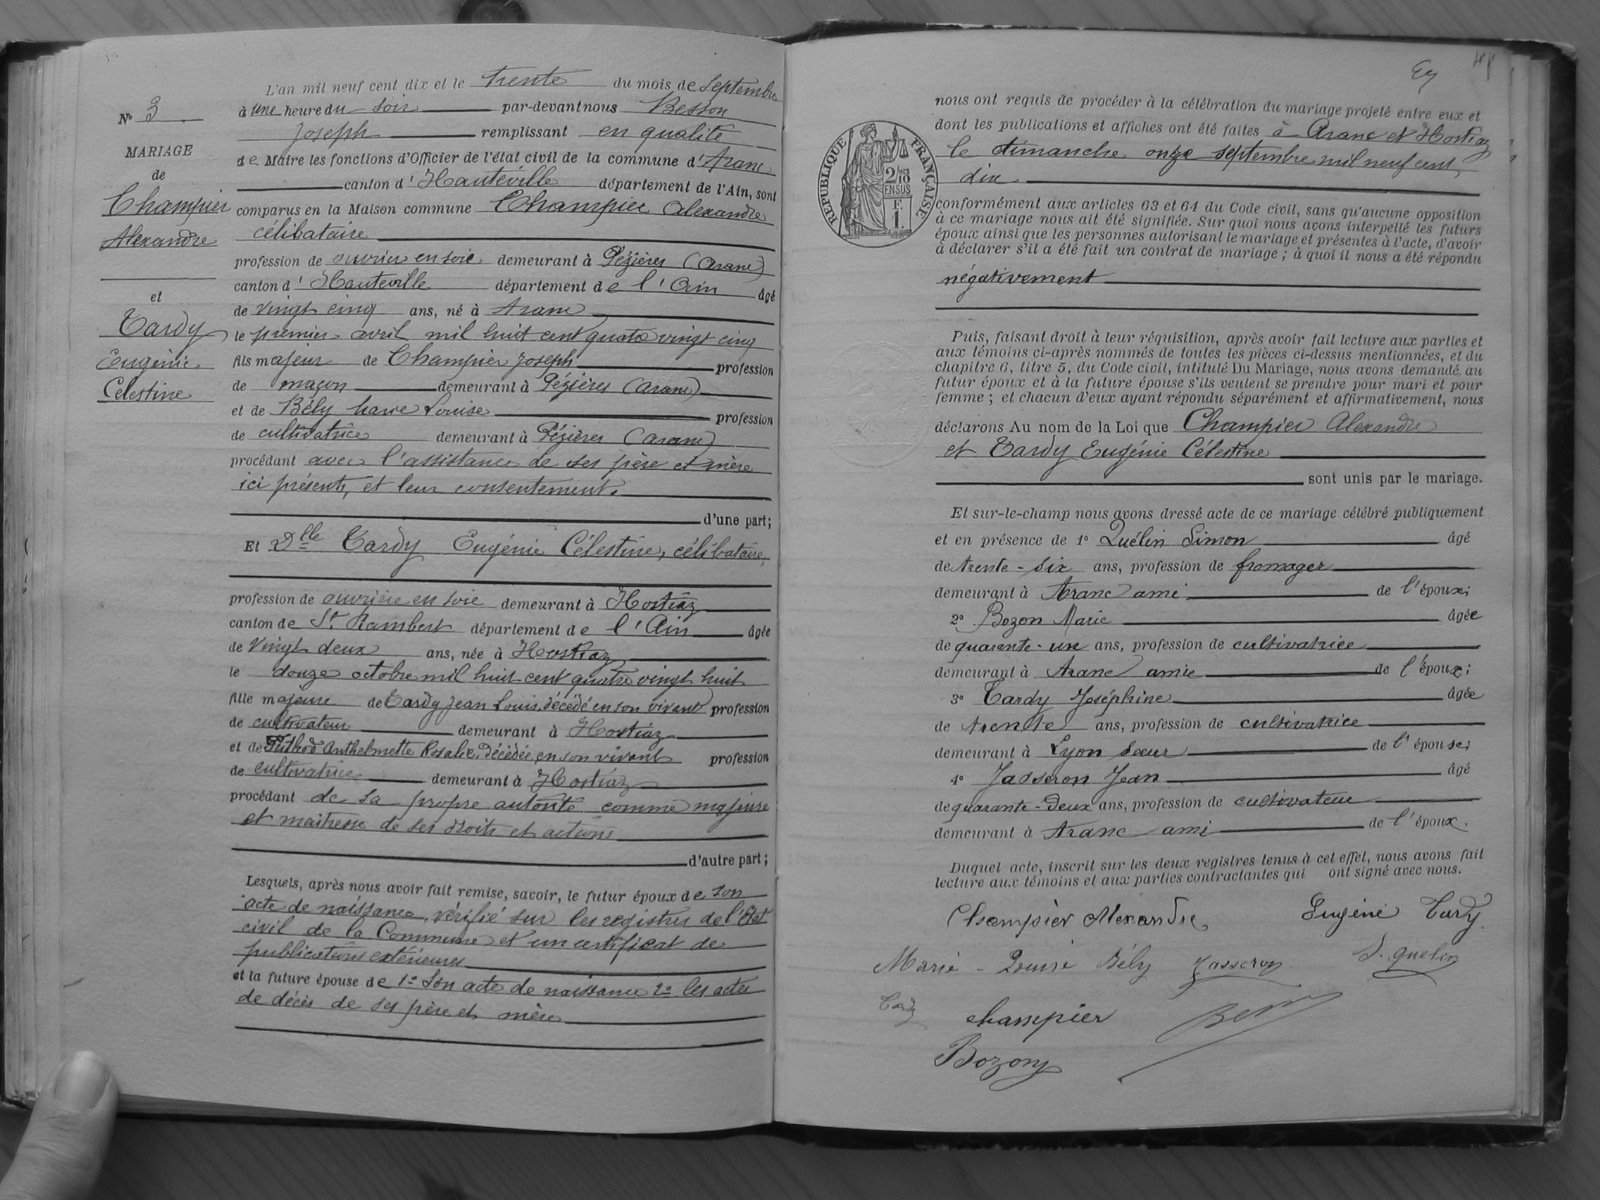 L'an mil neuf cent dix et le trente du mois de Septembre
à une heure du soir par-devant nous Besson
Joseph remplissant en qualité
de Maire les fonctions d'Officier de l'état civil de la commune d'Aranc
canton d'Hauteville département de l'Ain, sont
comparus en la Maison commune Champier Alexandre
célibataire
profession de ouvrier en soie demeurant à Pézières (Aranc)
canton d'Hauteville département de l'Ain âgé
de vingt cinq ans, né à Aranc
le premier avril mil huit cent quatre vingt cinq
fils majeur de Champier Joseph profession
de maçon demeurant à Pézières (Aranc)
et de Bély Marie Louise profession
de cultivatrice demeurant à Pézières (Aranc)
procédant avec l'assistance de ses père et mère
ici présents, et leur consentement.
d'une part;
Et Dlle Tardy Eugénie Célestine, célibataire,
profession de ouvrière en soie demeurant à Hostiaz
canton de St Rambert département de l'Ain âgée
de vingt deux ans, née à Hostiaz
le douze octobre mil huit cent quatre vingt huit
fille majeure de Tardy Jean Louis, décédé en son vivant profession
de cultivateur demeurant à Hostiaz
et de Anthelmette Rosalie, Décédée, en son vivant profession
de cultivatrice demeurant à Hostiaz
procédant de sa propre autorité comme majeure
et maitresse de ses droits et actions
d'autre part;
Lesquels, après nous avoir fait remise, savoir, le futur époux de son
acte de naissance, vérifié sur les registres de l'Etat
civil de la Commune et un certificat de
publications extérieures
et la future épouse de 1º Son acte de naissance 2º les actes
de décès de ses père et mère
Nº 3
MARIAGE
de
Champier
Alexandre
et
Tardy
Eugénie
Célestine
nous ont requis de procéder à la célébration du mariage projeté entre eux et
dont les publications et affiches ont été faites à Aranc et Hostiaz
le dimanche onze septembre mil neuf cent
dix
conformément aux articles 63 et 64 du Code civil, sans qu'aucune opposition
à ce mariage nous ait été signifiée. Sur quoi nous avons interpellé les futurs
époux ainsi que les personnes autorisant le mariage et présentes à l'acte, d'avoir
à déclarer s'il a été fait un contrat de mariage ; à quoi il nous a été répondu
négativement
Puis, faisant droit à leur réquisition, après avoir fait lecture aux parties et
aux témoins ci-après nommés de toutes les pièces ci-dessus mentionnées, et du
chapitre 6, titre 5, du Code civil, intitulé Du Mariage, nous avons demandé au
futur époux et à la future épouse s'ils veulent se prendre pour mari et pour
femme ; et chacun d'eux ayant répondu séparément et affirmativement, nous
déclarons Au nom de la Loi que Champier Alexandre
et Tardy Eugénie Célestine
sont unis par le mariage.
Et sur-le-champ nous avons dressé acte de ce mariage célébré publiquement
et en présence de 1º Quélin Simon âgé
de trente-six ans, profession de fromager
demeurant à Aranc ami de l'époux;
2º Bozon Marie âgée
de quarante-un ans, profession de cultivatrice
demeurant à Aranc amie de l'époux;
3º Tardy Joséphine âgée
de trente ans, profession de cultivatrice
demeurant à Lyon sœur de l'épouse;
4º Jasseron Jean âgé
de quarante-Deux ans, profession de cultivateur
demeurant à Aranc ami de l'époux.
Duquel acte, inscrit sur les deux registres tenus à cet effet, nous avons fait
lecture aux témoins et aux parties contractantes qui ont signé avec nous.
Champier Alexandre Eugénie Tardy
Marie-Louise Bély Jasseron S. Quelin
Tardy Champier Besson
Bozon
RÉPUBLIQUE FRANÇAISE
2/10 EN SUS
F. 1.